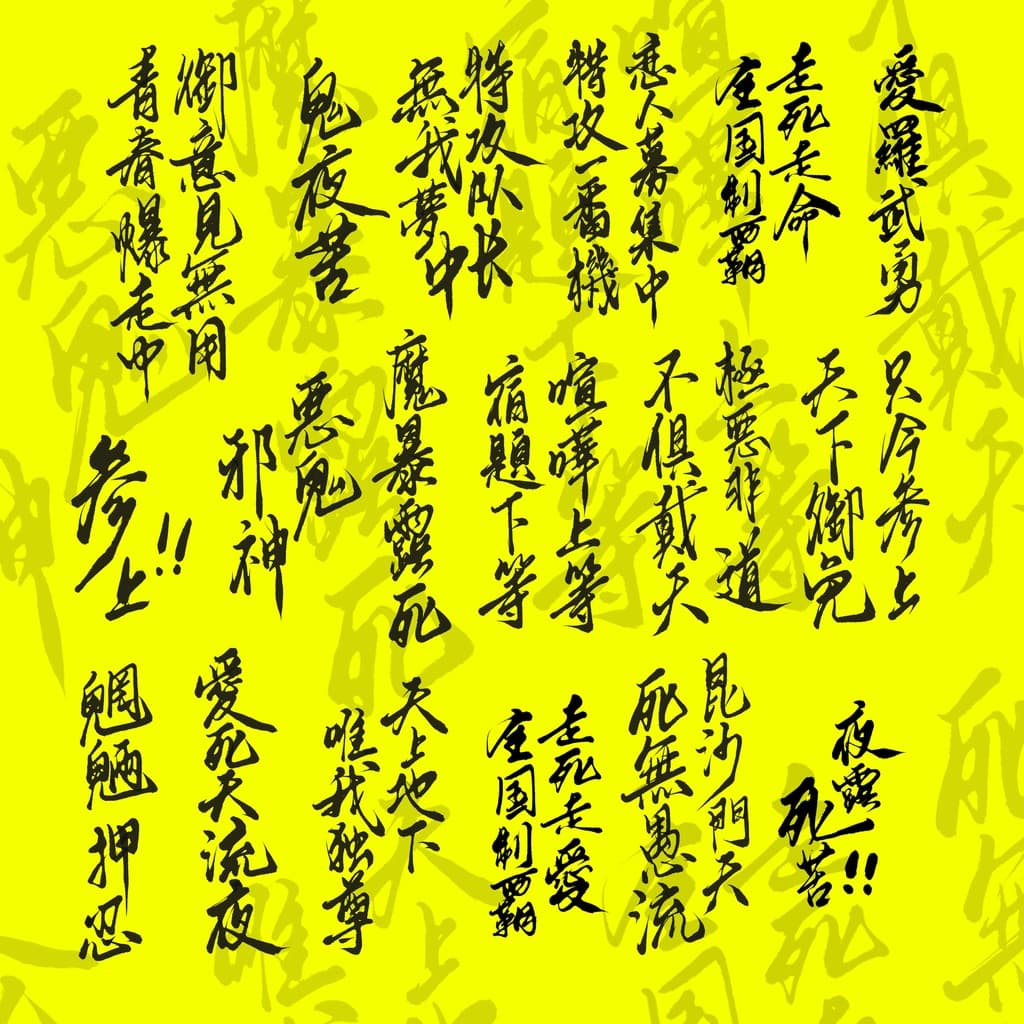 愛羅武勇
走死走命
全国制覇
恋人募集中
特攻一番機
特攻队长
無我夢中
鬼夜苦
御意見無用
青春爆走中
只今参上
天下御免
極悪非道
不倶戴天
喧嘩上等
宿題下等
魔暴露死
悪鬼
邪神
参上!!
夜露
死苦!!
昆沙門天
死無愚流
走死走愛
全国制覇
天上地下
唯我独尊
愛死天流夜
魍魎押忍